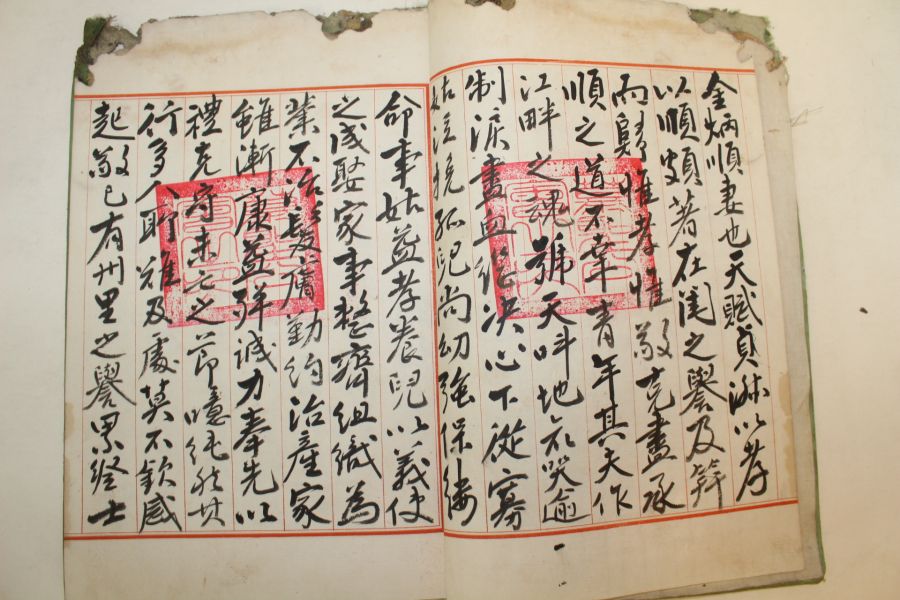 金炳順妻也天賦貞淑以孝
以順頗著在閨之譽及笄
而歸惟孝惟敬克盡承
順之道不幸青年其夫作
江畔之魂號天叫地哀哭逾
制淚盡血繼決心下從寡
姑泣挽孤兒尚幼強保縷
命事姑益孝養兒以義使
之成娶家事整齊組織為
業不治髮膚勤約治產家
雖漸康益殫誠力奉先以
禮克守未亡之節噫純然其
行多人所難及處莫不欽感
起敬已有州里之譽累經士